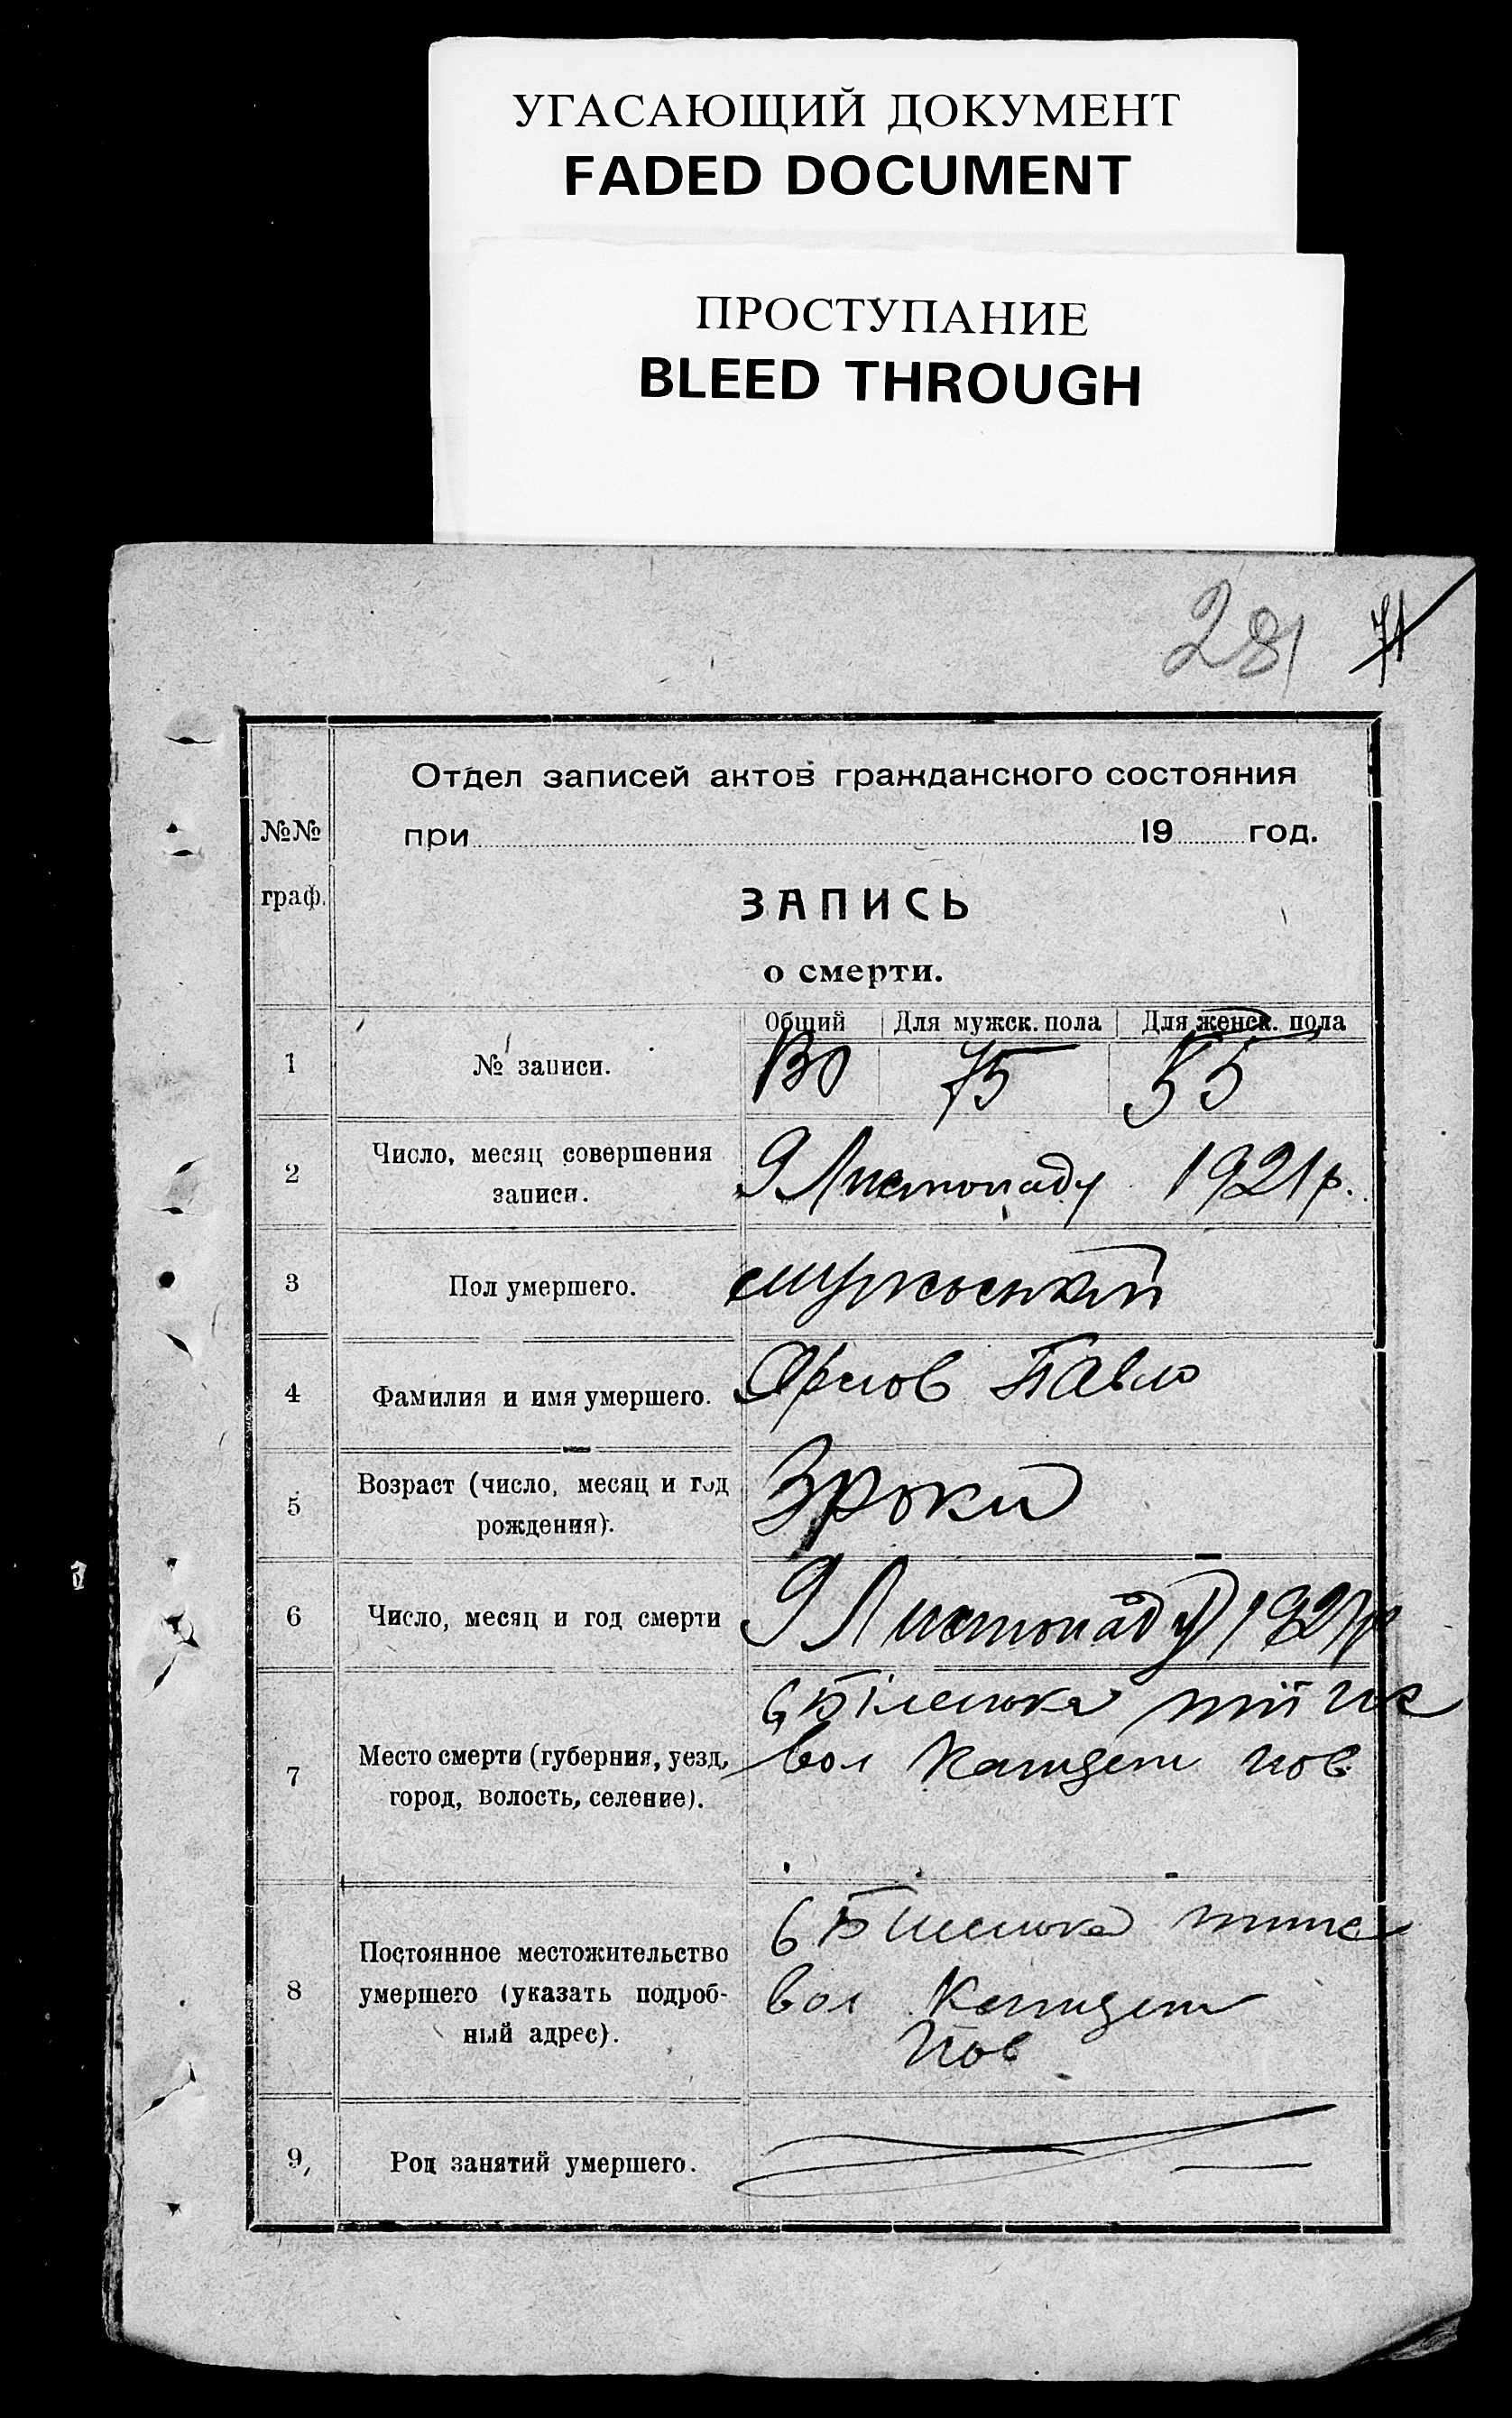 УГАСАЮЩИЙ ДОКУМЕНТ
FADED DOCUMENT
ПРОСТУПАНИЕ
BLEED THROUGH
281 71
Отдел записей актов гражданского состояния
№№ граф.
при 19 год.
ЗАПИСЬ
о смерти.
Общий Для мужск. пола Для женск. пола
1 № записи. 130 75 55
2 Число, месяц совершения записи. 9 Листопаду 1921 р.
3 Пол умершего. мужоський
4 Фамилия и имя умершего. Орлов Павло
5 Возраст (число, месяц и год рождения). 3 роки
6 Число, месяц и год смерти 9 Листопаду 1921 р
7 Место смерти (губерния, уезд, город, волость, селение).
вол пов
8 Постоянное местожительство умершего (указать подробный адрес).
вол
Пов
9, Род занятий умершего.